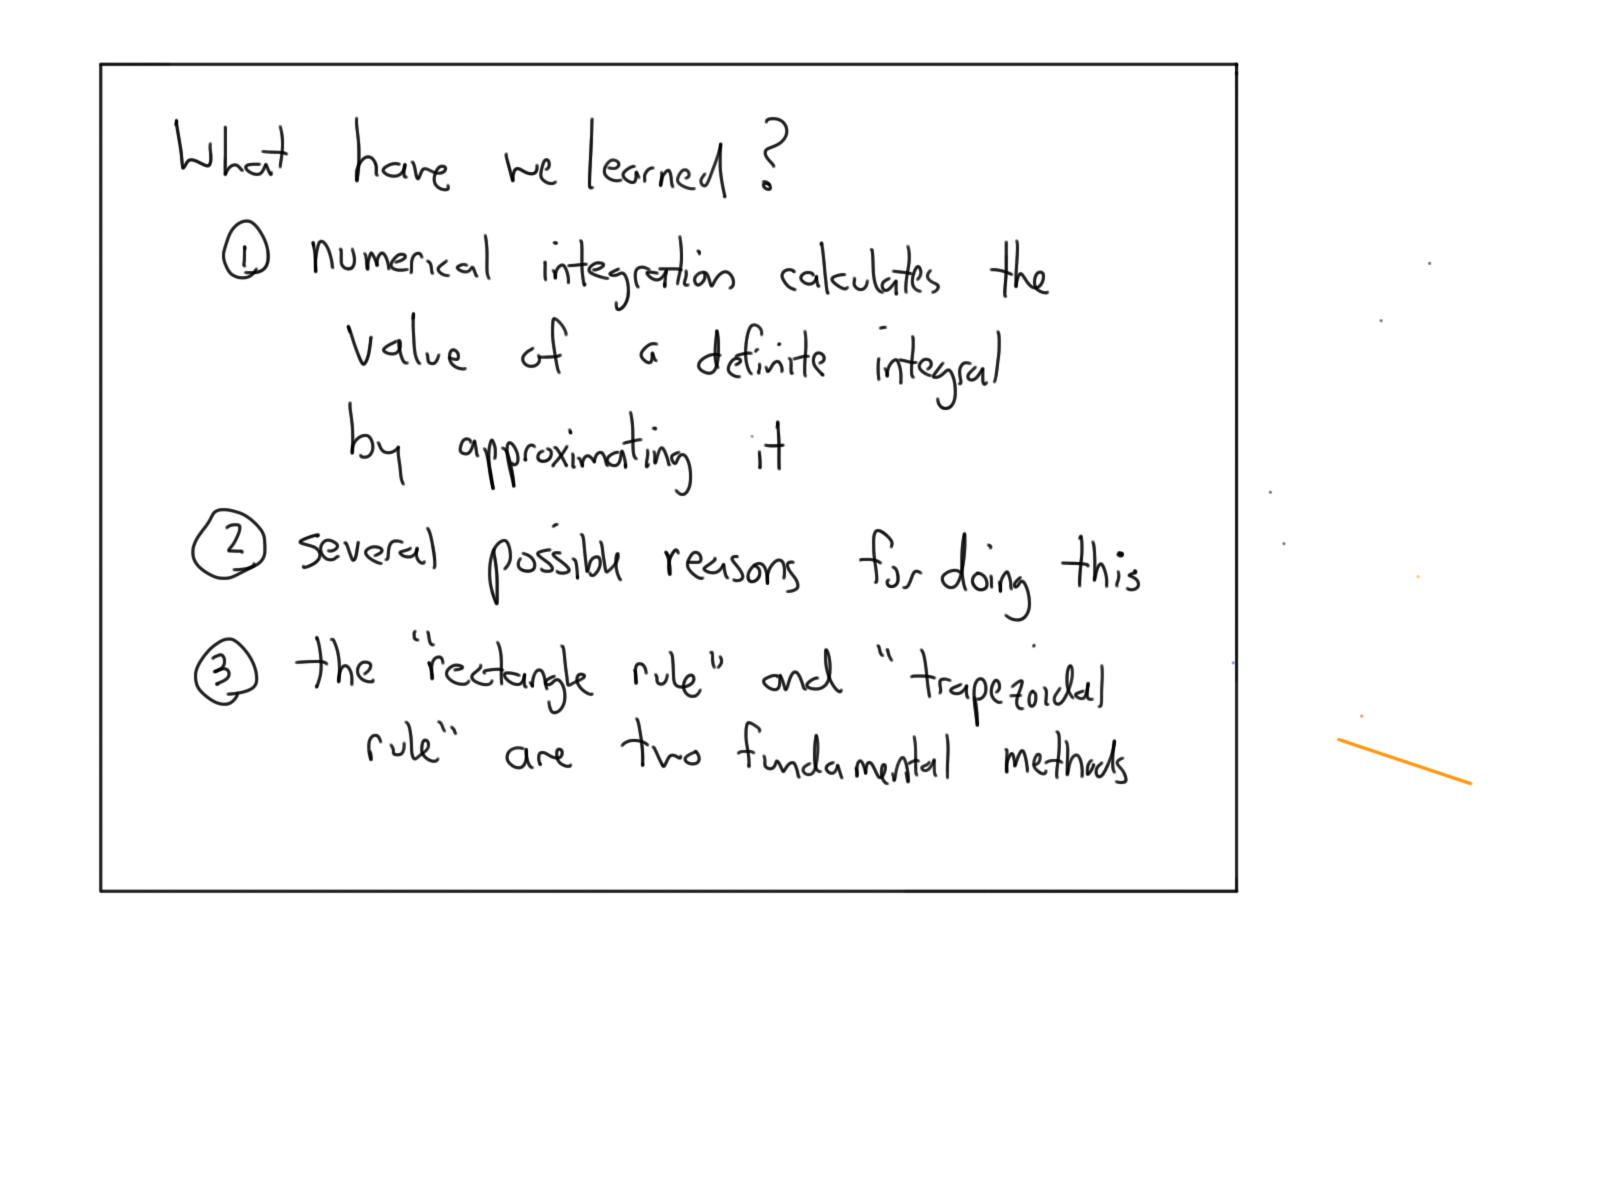 What have we learned?
① numerical integration calculates the
value of a definite integral
by approximating it
② several possible reasons for doing this
③ the "rectangle rule" and "trapezoidal
rule" are two fundamental methods